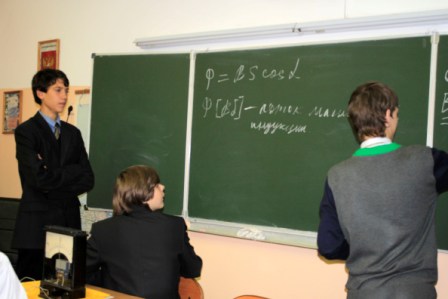 Φ = BS cos α
Φ [Вб] – поток магн
индукции